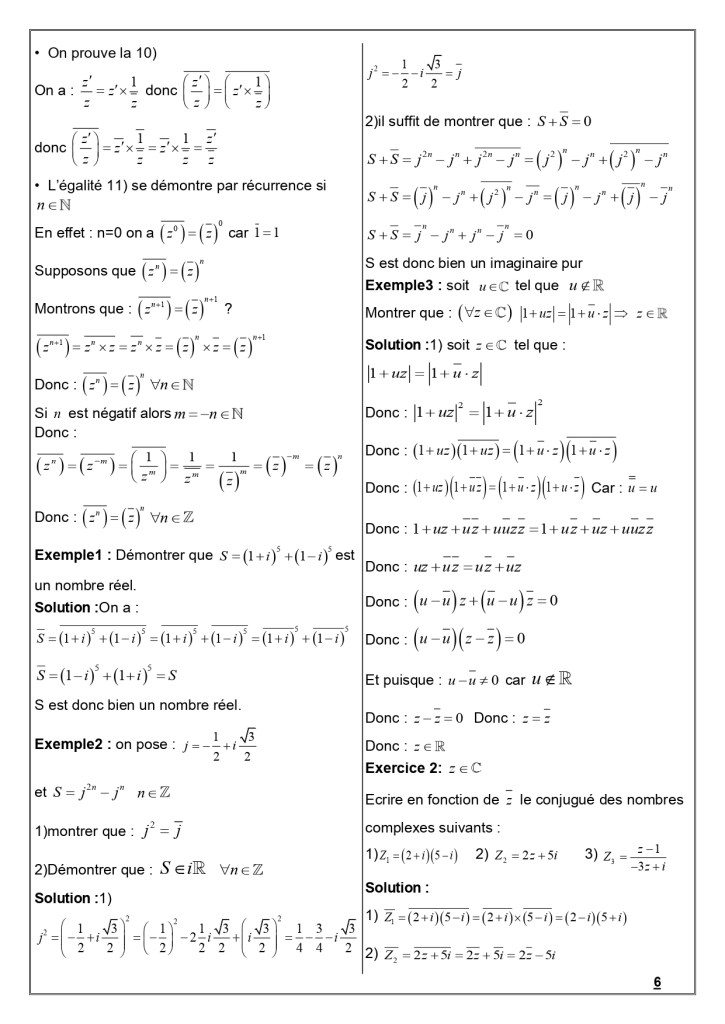 • On prouve la 10)
On a : $\frac{z'}{z} = z' \times \frac{1}{z}$ donc $\overline{\left(\frac{z'}{z}\right)} = \overline{\left(z' \times \frac{1}{z}\right)}$
donc $\overline{\left(\frac{z'}{z}\right)} = \overline{z'} \times \frac{\overline{1}}{\overline{z}} = \overline{z'} \times \frac{1}{\overline{z}} = \frac{\overline{z'}}{\overline{z}}$
• L'égalité 11) se démontre par récurrence si
$n \in \mathbb{N}$
En effet : n=0 on a $\overline{(z^0)} = (\overline{z})^0$ car $\overline{1} = 1$
Supposons que $\overline{(z^n)} = (\overline{z})^n$
Montrons que : $\overline{(z^{n+1})} = (\overline{z})^{n+1}$ ?
$\overline{(z^{n+1})} = \overline{z^n \times z} = \overline{z^n} \times \overline{z} = (\overline{z})^n \times \overline{z} = (\overline{z})^{n+1}$
Donc : $\overline{(z^n)} = (\overline{z})^n$ $\forall n \in \mathbb{N}$
Si $n$ est négatif alors $m = -n \in \mathbb{N}$
Donc :
$\overline{(z^n)} = \overline{(z^{-m})} = \overline{\left(\frac{1}{z^m}\right)} = \frac{1}{\overline{z^m}} = \frac{1}{(\overline{z})^m} = (\overline{z})^{-m} = (\overline{z})^n$
Donc : $\overline{(z^n)} = (\overline{z})^n$ $\forall n \in \mathbb{Z}$
Exemple1 : Démontrer que $S = (1+i)^5 + (1-i)^5$ est
un nombre réel.
Solution :On a :
$\overline{S} = \overline{(1+i)^5 + (1-i)^5} = \overline{(1+i)^5} + \overline{(1-i)^5} = \overline{(1+i)}^5 + \overline{(1-i)}^5$
$\overline{S} = (1-i)^5 + (1+i)^5 = S$
S est donc bien un nombre réel.
Exemple2 : on pose : $j = -\frac{1}{2} + i\frac{\sqrt{3}}{2}$
et $S = j^{2n} - j^n$ $n \in \mathbb{Z}$
1)montrer que : $j^2 = \overline{j}$
2)Démontrer que : $S \in i\mathbb{R}$ $\forall n \in \mathbb{Z}$
Solution :1)
$j^2 = \left(-\frac{1}{2} + i\frac{\sqrt{3}}{2}\right)^2 = \left(-\frac{1}{2}\right)^2 - 2\frac{1}{2}i\frac{\sqrt{3}}{2} + \left(i\frac{\sqrt{3}}{2}\right)^2 = \frac{1}{4} - \frac{3}{4} - i\frac{\sqrt{3}}{2}$
$j^2 = -\frac{1}{2} - i\frac{\sqrt{3}}{2} = \overline{j}$
2)il suffit de montrer que : $S + \overline{S} = 0$
$S + \overline{S} = j^{2n} - j^n + \overline{j^{2n} - j^n} = (j^2)^n - j^n + \overline{(j^2)^n - j^n}$
$S + \overline{S} = (\overline{j})^n - j^n + \overline{(j^2)}^n - \overline{j^n} = (\overline{j})^n - j^n + \overline{(\overline{j})}^n - \overline{j}^n$
$S + \overline{S} = \overline{j}^n - j^n + j^n - \overline{j}^n = 0$
S est donc bien un imaginaire pur
Exemple3 : soit $u \in \mathbb{C}$ tel que $u \notin \mathbb{R}$
Montrer que : $(\forall z \in \mathbb{C})$ $|1+uz| = |1+\overline{u} \cdot z| \Rightarrow z \in \mathbb{R}$
Solution :1) soit $z \in \mathbb{C}$ tel que :
$|1+uz| = |1+\overline{u} \cdot z|$
Donc : $|1+uz|^2 = |1+\overline{u} \cdot z|^2$
Donc : $(1+uz)\overline{(1+uz)} = (1+\overline{u} \cdot z)\overline{(1+\overline{u} \cdot z)}$
Donc : $(1+uz)(1+\overline{u}\,\overline{z}) = (1+\overline{u} \cdot z)(1+u \cdot \overline{z})$ Car : $\overline{\overline{u}} = u$
Donc : $1+uz+\overline{u}\,\overline{z}+u\overline{u}z\overline{z} = 1+\overline{u}z+u\overline{z}+u\overline{u}z\overline{z}$
Donc : $uz+\overline{u}\,\overline{z} = u\overline{z}+\overline{u}z$
Donc : $(u-\overline{u})z+(\overline{u}-u)\overline{z} = 0$
Donc : $(u-\overline{u})(z-\overline{z}) = 0$
Et puisque : $u-\overline{u} \neq 0$ car $u \notin \mathbb{R}$
Donc : $z-\overline{z} = 0$ Donc : $z = \overline{z}$
Donc : $z \in \mathbb{R}$
Exercice 2: $z \in \mathbb{C}$
Ecrire en fonction de $\overline{z}$ le conjugué des nombres
complexes suivants :
1) $Z_1 = (2+i)(5-i)$ 2) $Z_2 = 2z+5i$ 3) $Z_3 = \frac{z-1}{-3z+i}$
Solution :
1) $\overline{Z_1} = \overline{(2+i)(5-i)} = \overline{(2+i)} \times \overline{(5-i)} = (2-i)(5+i)$
2) $\overline{Z_2} = \overline{2z+5i} = \overline{2z}+\overline{5i} = 2\overline{z}-5i$
6